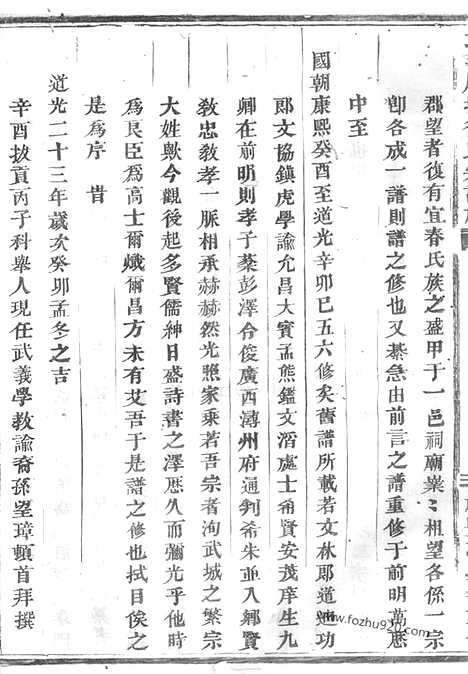 郡望者復有宜春氏族之盛甲于一邑祠廟纍〻相望各係一宗
卽各成一譜則譜之修也又綦急由前言之譜重修于前明萬歷
中至
國朝康熙癸酉至道光辛卯巳五六修矣舊譜所載若文林郎道通功
郎文協鎮虎學諭允昌大賓孟熊鑑文滔處士希賢安茂庠生九
卿在前明則孝子蘂彭澤令俊廣西潯州府通判希朱並入鄉賢
敎忠敎孝一脈相承赫赫然光照家乘若吾宗者洵武城之繁宗
大姓歟今觀後起多賢儒紳日盛詩書之澤歷久而彌光乎他時
爲良臣爲高士爾熾爾昌方未有艾吾于是譜之修也拭目俟之
是爲序 旹
道光二十三年歲次癸卯孟冬之吉
辛酉拔貢丙子科舉人現任武義學教諭裔孫望璋頓首拜撰
www.fozhu920.com